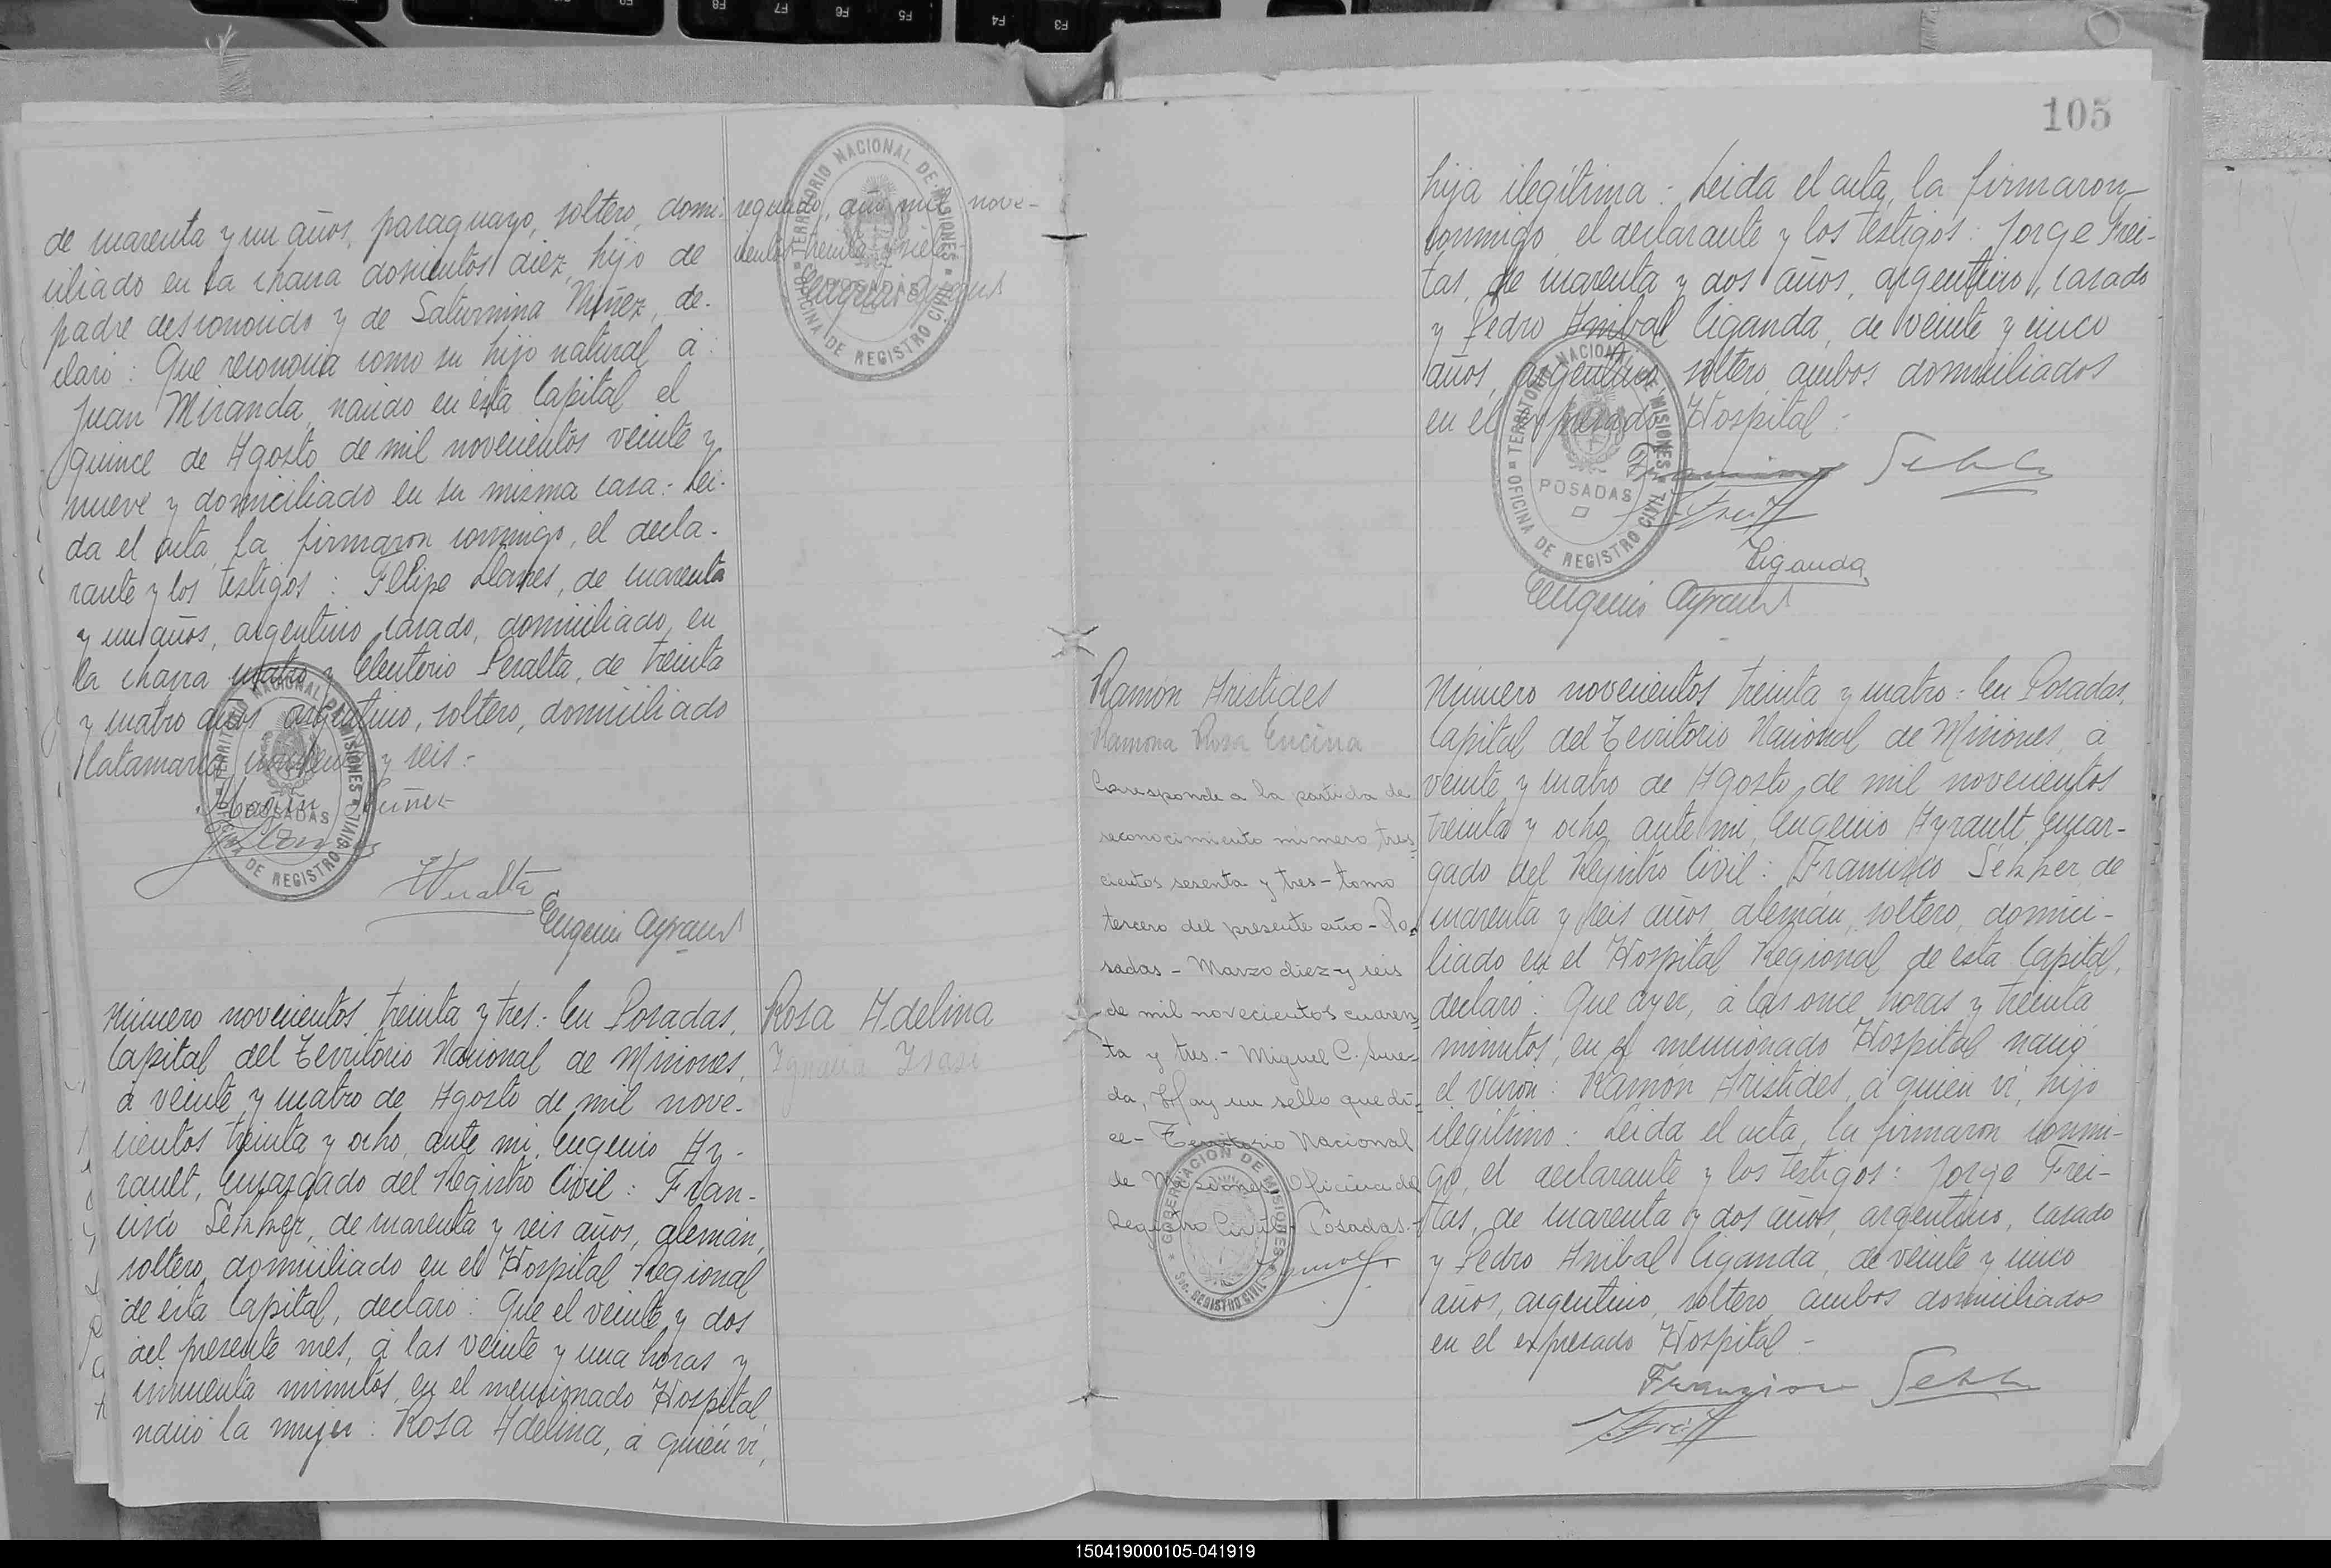 de cuarenta y un años, paraguayo, soltero, domi-
ciliado en la chacra doscientos diez, hijo de
padre desconocido y de Saturnina Núñez, de-
claró: Que reconocia como su hijo natural á:
Juan Miranda, nacido en ésta Capital el
quince de Agosto de mil novecientos veinte y
nueve y domiciliado en su misma casa:- Lei-
da el acta, la firmaron conmigo, el decla-
rante y los testigos: Felipe Llanes, de cuarenta
y un años, argentino casado, domiciliado en
la chacra cuatro y Eleuterio Peralta, de treinta
y cuatro años argentino, soltero, domiciliado
Catamarca y seis:-
Núñez
Peralta
Eugenio Ayrault
Número novecientos treinta y tres:- En Posadas,
Capital del Territorio Nacional de Misiones,
á veinte y cuatro de Agosto de mil nove-
cientos treinta y ocho, ante mi, Eugenio Ay-
rault, Encargado del Registro Civil: Fran-
cisco Sekker, de cuarenta y seis años, alemán,
soltero, domiciliado en el Hospital Regional
de ésta Capital, declaró: Que el veinte y dos
del presente mes, á las veinte y una horas y
cincuenta minutos, en el mencionado Hospital,
nació la mujer: Rosa Adelina, á quién vi,
regundo, año mil nove-
cientos treinta y siete
Eugenio Ayrault
TERRITORIO NACIONAL DE MISIONES
OFICINA DE REGISTRO CIVIL
POSADAS
Rosa Adelina
Ignacia Isasi
105
hija ilegítima:- Leida el acta, la firmaron
conmigo, el declarante y los testigos: Jorge Frei-
tas, de cuarenta y dos años, argentino, casado
y Pedro Anibal Ciganda, de veinte y cinco
años, argentino, soltero, ambos domiciliados
en el expresado Hospital:-
TERRITORIO NACIONAL DE MISIONES
OFICINA DE REGISTRO CIVIL
POSADAS
Ciganda
Eugenio Ayrault
Ramón Aristides
Ramona Rosa Encina
Corresponde a la partida de
reconocimiento número tres-
cientos sesenta y tres - tomo
tercero del presente año - Po-
sadas - Marzo diez y seis
de mil novecientos cuaren-
ta y tres.- Miguel C.
da, Hay un sello que di-
ce - Territorio Nacional
de Misiones Oficina del
Registro Civil - Posadas.-
GOBERNACION DE MISIONES
Sec. REGISTRO CIVIL
Número novecientos treinta y cuatro:- En Posadas,
Capital del Territorio Nacional de Misiones, á
veinte y cuatro de Agosto de mil novecientos
treinta y ocho, ante mi, Eugenio Ayrault, Encar-
gado del Registro Civil: Francisco Sekker, de
cuarenta y seis años, alemán, soltero, domici-
liado en el Hospital Regional de ésta Capital,
declaró: Que ayer, á las once horas y treinta
minutos, en el mencionado Hospital nació
el varón: Ramón Aristides, á quién vi, hijo
ilegítimo:- Leida el acta, la firmaron conmi-
go, el declarante y los testigos: Jorge Frei-
tas, de cuarenta y dos años, argentino, casado
y Pedro Anibal Ciganda, de veinte y cinco
años, argentino, soltero, ambos domiciliados
en el expresado Hospital:-
150419000105-041919